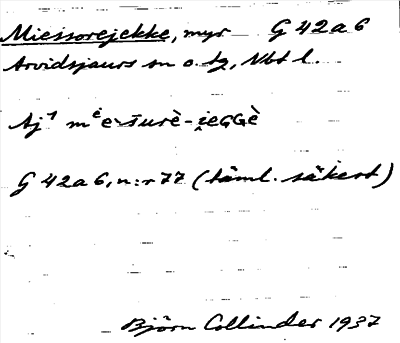 Miessorejekke, myr G 42 a 6
Arvidsjaurs sn o. tg, Nbt l.
Aj¹
G 42 a 6, n:r 77 (täml. säkert)
Björn Collinder 1937